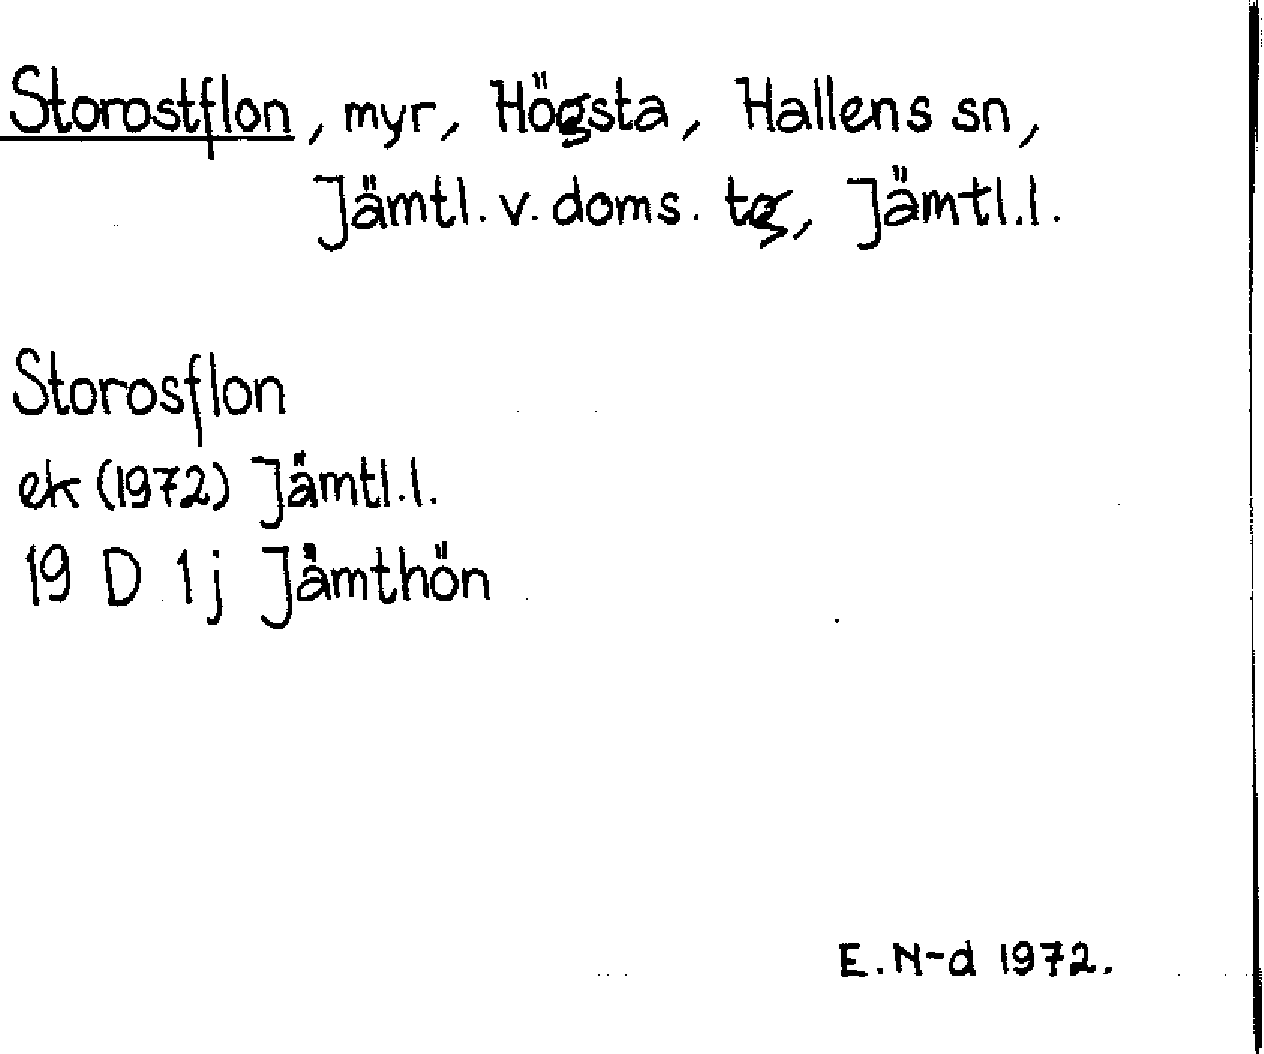 Storostflon, myr, Högsta, Hallens sn,
Jämtl. v. doms. tg, Jämtl.l.
Storosflon
ek (1972) Jämtl.l.
19 D 1j Jämthön
E.N-d 1972.